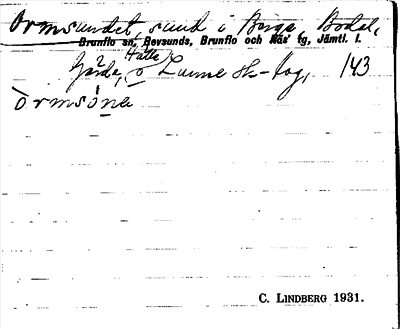 Ormsundet, sund i Berge, Bodal,
Brunflo sn, Revsunds, Brunflo och Näs' tg, Jämtl. l.
Gärde, Hälle o Lunne sk-lag, 143
Òrmsó̱na
C. LINDBERG 1931.